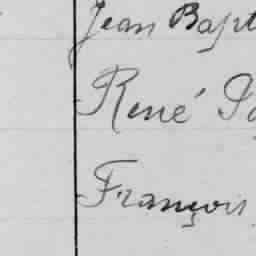 Jean Bapt
René
François